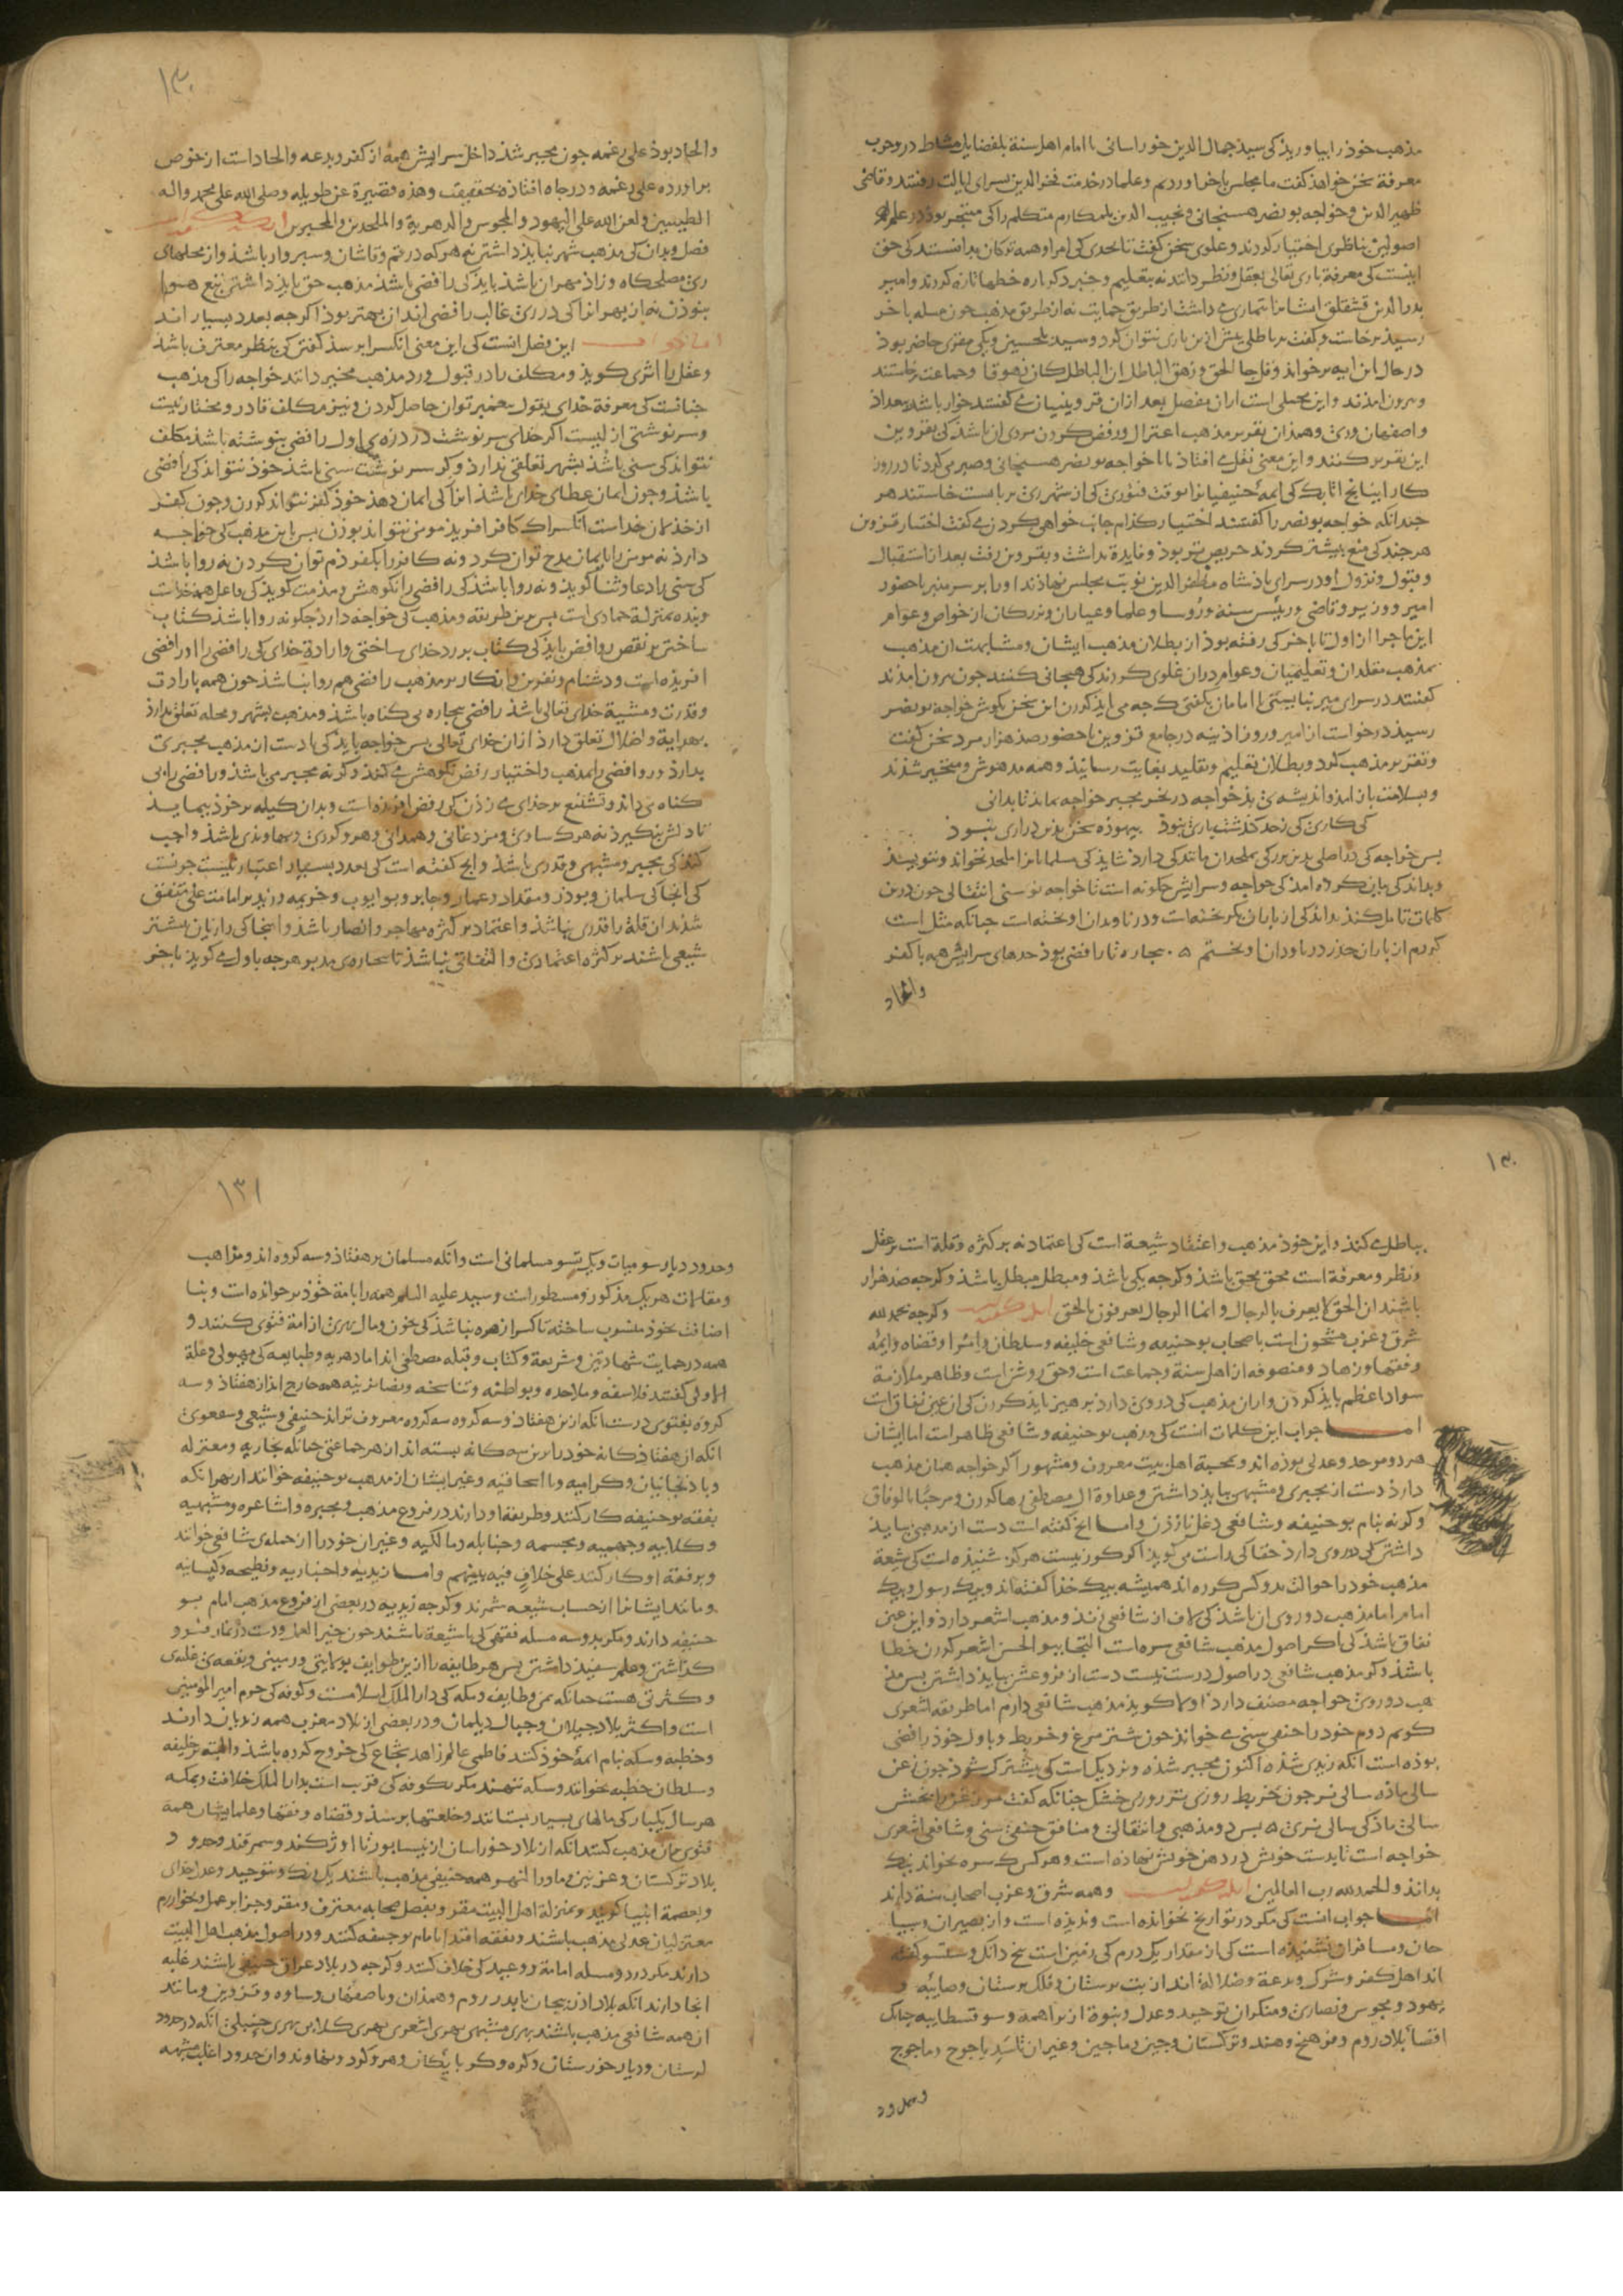 مذهب خوذ را بیاوریذ کی سیذ جمال الدین خوراسانی با امام اهل سنة بلفضایل مشاط در وجوب
معرفة سخن خواهذ کفت ما مجلس باخر اوردیم و علما در خدمت فخر الدین بسرای ایالت رفتند و قاضی
ظهیر الدین و خواجه بو نصر هسنجانی و نجیب الدین بلمکارم متکلم را کی متبحر بوذ در علم
اصولین بناظری اختیار کردند و علوی سخن کفت تا بحدی کی امرا و همه ترکان بدانستند کی حق
اینست کی معرفة باری تعالی بعقل و نظر دانند نه بتعلیم و خبر دکرباره خطها تازه کردند و امیر
بدر الدین قشقلق ایشانرا تیماری می داشت از طریق حمایت نه از طریق مذهب جون مسله باخر
رسیذ برخاست و کفت بر باطلی بیش ازین یاری نتوان کرد و سید بلحسین ویکی مقری حاضر بوذ
در حال این ایه برخواند و قل جا الحق و زهق الباطل ان الباطل کان زهوقا و جماعت برخاستند
و برون امذند و این مجملی است از ان مفصل بعد از ان قزوینیان می کفتند خوار باشذ بغداذ
و اصفهان و ری و همذان تقریر مذهب اعتزال و رفض کردن مردی ان باشذ کی بقزوین
این تقریر کنند و این معنی نقل می افتاذ تا با خواجه بو نصر هسنجانی و صبر می کرد تا در روز
کار اینانج اتابک کی ایمهٔ حنیفیانرا بوقت فتوری کی از شهر ری بربایست خاستند هر
جندانکه خواجه بو نصر را کفتند اختیار کذام جانب خواهی کردن می کفت اختیار قزوین
هرجند کی منع بیشتر کردند حریص تر بوذ و فایدة نداشت و بقزوین رفت بعد از استقبال
و قبول و نزول او در سرای باذشاه مظفر الدین نوبت مجلس نهاذند او را بر سر منبر باحضور
امیر و وزیر و قاضی و رئیس سنة و رؤسا و علما و عیاران و بزرکان از خواص و عوام
این ماجرا از اول تا باخر کی رفته بوذ از بطلان مذهب ایشان و مشابهت ان مذهب
بمذهب مقلدان و تعلیمیان و عوام در ان غلوی کردند کی هیجانی کنند جون برون امذند
کفتند در سرای میر نبایستی با امامان یکفتی کجه می ایذ کردن این سخن بکوش خواجه بو نصر
رسیذ درخواست از امیر و روز اذینه در جامع قزوین با حضور صذ هزار مرد سخن کفت
و تقریر مذهب کرد و بطلان تعلیم و تقلید بغایت رسانیذ و همه مدهوش و متحیر شذند
و بسلامت باز امذ و اندیشه ی بذ خواجه در نحر مجبر خواجه بماند تا بدانی
کی کاری کی زحد کذشت یاری نبوذ بیهوذه سخن بدین درازی نبسوذ
بس خواجه کی در اصلی بدین بزرکی بملحدان مانند کی دارد شایذ کی مسلمانانرا ملحد نخواند و ننویسذ
و بداند کی بیان کرده امذ کی خواجه و سرایش جکونه است تا خواجه نو سنی انتقالی جون درین
کلمات تامل کند بداند کی از باران بکریخته است و در ناودان اویخته است جنانکه مثل است
کردم از باران حذر در ناودان اویختم ۵ بیجاره تا رافضی بوذ حدهای سرایش همه با کفر
والحاد
۱۳۰
والحاد بوذ علی رغمه جون مجبر شذ داخل سرایش همه از کفر و بدعه و الحاد است از خوض
براورده علی رغمه و در جاه افتاذه بتحقیقت و هذه قصیرة عن طویله و صلی الله علی محمد واله
الطیبین و لعن الله علی الیهود و المجوس و الدهریة و الملحدین و المجبرین
فصل و بدان کی مذهب شهر نبایذ داشتن نه هرکه در قم و قاشان و سبزوار باشذ و از محلهای
ری مصلحکاه و زاذ مهران باشذ بایذ کی رافضی باشذ مذهب حق بایذ داشتن بتبع هوا
بنوذن نه از بهر انرا کی در ری غالب رافضی اند ان بهتر بوذ اکرجه بعدد بسیار اند
این فصل انست کی این معنی انکس را برسذ کفتن کی بنظر معترف باشذ
و عقل را اثری کویذ و مکلف را در قبول و رد مذهب مخیر داند خواجه را کی مذهب
جنانست کی معرفة خدای بقول بیغمبر توان حاصل کردن و نیز مکلف قادر و مختار نیست
و سرنوشتی ازلیست اکر خدای سرنوشت در درهٔ ی اول رافضی بنوشته باشذ مکلف
نتواند کی سنی باشذ بشهر تعلقی ندارذ و کر سرنوشت سنی باشذ خوذ نتواند کی رافضی
باشذ و جون ایمان عطای خدای باشذ انرا کی ایمان دهذ خوذ کفر نتواند کردن و جون کفر
از خذلان خداست انکس را که کافر افریذ مومن نتواند بوذن بس باین مذهب کی خواجه
دارذ نه مومن را بایمان مدح توان کرد و نه کافر را بکفر ذم توان کردن نه روا باشذ
کی سنی را دعا و ثنا کویذ و نه روا باشذ کی رافضی را نکوهش و مذمت کویذ کی فاعل همه خداست
و بنده بمنزلة جمادی است بس برین طریقه و مذهب کی خواجه دارذ جکونه روا باشذ کتاب
ساختن بر نقص روافض بایذ کی کتاب بر رد خدای ساختی و ارادة خدای کی رافضی را او رافضی
افریذه است و دشنام و نفرین و انکار بر مذهب رافضی هم روا نباشذ جون همه بارادت
و قدرت و مشیة خدای تعالی باشذ رافضی بیجاره بی کناه باشذ و مذهب بشهر و محله تعلق ندارذ
بهدایة و اضلال تعلق دارذ از ان خدای تعالی بس خواجه بایذ کی یا دست از مذهب مجبری
بدارذ و روافضی را بمذهب و اختیار رفض نکوهش می کند و کر نه مجبر می باشذ و رافضی را بی
کناه می داند و تشنیع بر خدای می زذن کی رفض افریذه است و بدان کیله بر خوذ بیمایذ
تا دلش بنکیرذ نه هرک ساوی و مزدغانی و همدانی و هرو کوردی و نهاوندی باشذ واجب
کند کی مجبر و مشبهی و قدری باشذ و انج کفته است کی بعدد بسیار اعتبار نیست جونست
کی انجا کی سلمان و بوذر و مقداد و عمار و جابر و بو ایوب و خزیمه و زید بر امامت علی متفق
شذند ان قلة را قدری نباشذ و اعتماد بر کثرة مهاجر و انصار باشذ و اینجا کی رازیان بیشتر
شیعی باشند بر کثرة اعتمادی و التفاتی نباشذ تا بیجاره ی مدبر هرجه باول می کویذ باخر
۱۳۰
باطل می کند و این خوذ مذهب و اعتقاد شیعة است کی اعتماد نه بر کثرة و قلة است بر عقل
و نظر و معرفة است محق محق باشذ و کرجه یکی باشذ و مبطل مبطل باشذ و کرجه صد هزار
باشند ان الحق لا یعرف بالرجال و انما الرجال یعرفون بالحق و کرجه بحمد لله
شرق و غرب مشحون است باصحاب بو حنیفه و شافعی خلیفه و سلطان و امرا و قضاه و ایمه
و فقها و زهاد و متصوفه از اهل سنة و جماعت است و حق روشن است و ظاهر ملازمة
سواد اعظم بایذ کردن و از ان مذهب کی دروی دارد برهیز بایذ کردن کی از عین نفاق است
اما جواب این کلمات انست کی مذهب بو حنیفه و شافعی ظاهر است اما ایشان
هر دو موحد و عدلی بوذه اند و بمحبة اهل بیت معروف و مشهور اکر خواجه همان مذهب
دارذ دست از مجبری و مشبهی ببایذ داشتن و عداوة ال مصطفی رها کردن و مرحبا بالوفاق
و کر نه بنام بو حنیفه و شافعی دغل نازذن و اما انج کفته است دست از مذهبی ببایذ
داشتن کی دوروی دارذ حقا کی راست می کویذ اکر کور نیست هرکز شنیذه است کی شیعة
مذهب خوذ را حوالت بدو کس کرده اند همیشه بیک خذا کفته اند و بیک رسول و بیک
امام اما مذهب دوروی ان باشذ کی لاف از شافعی زنذ و مذهب اشعر دارذ و این عین
نفاق باشذ کی با کر اصول مذهب شافعی سره است التجا ببو الحسن اشعر کردن خطا
باشذ و کر مذهب شافعی در اصول درست نیست دست از فروعش ببایذ داشتن بس مذ
هب دوروی خواجه مصنف دارذ اولا کویذ مذهب شافعی دارم اما طریقه اشعری
کویم دوم خوذ را حنفی سنی می خواند جون شتر مرغ و خربط و باول خوذ رافضی
بوذه است انکه زیدی شذه اکنون مجبر شذه و نزدیک است کی مشترک شوذ جون زغن
سالی ماذه سالی نر جون خربط روزی بتر روزی خشک جنانکه کفت
سالی ماذکی سالی نری ۵ بس دو مذهبی و انتقالی و منافق حنفی سنی و شافعی اشعری
خواجه است تا بدست خویش در دهن خویش نهاذه است و هرکس ک سره بخواند نیک
بداند والحمد لله رب العالمین و همه شرق و غرب اصحاب سنة دارند
اما جواب انست کی مکر در تواریخ نخوانده است و ندیذه است و از بصیران و سیا
حان و مسافران نشنیذه است کی از مقدار یک درم کی زمین است بنج دانک و ستسو کفته
اند اهل کفر و شرک و بدعة و ضلالة اند از بت برستان و فلک برستان و صابیه و
یهود و مجوس و نصاری و منکران توحید و عدل و نبوة از براهمه و سوفسطاییه جنانک
اقصاء بلاد روم و فرهنج و هند و ترکستان و جین و ماجین و غیر ان تا سد یاجوج و ماجوج
و حدود
۱۳۱
و حدود دیار سومیات و یک تسو مسلمانی است و انکه مسلمانان بر هفتاذ و سه کروه اند و مذاهب
و مقامات هر یک مذکور و مسطور است و سید علیه السلم همه را بامة خوذ برخوانده است و بنا
اضافت بخوذ منسوب ساخته تا کس را زهره نباشذ کی خون و مال بهری از امة فتوی کنند و
همه در حمایت شهادتین و شریعة و کتاب و قبله مصطفی اند اما دهریه و طبایعه کی بهیولی و علة
الاولی کفتند فلاسفه و ملاحده و بواطنه و تناسخه و نصانزینه همه خارج اند از هفتاذ و سه
کروه بفتوی درست انکه ازین هفتاذ و سه کروه سه کروه معروف تر اند حنیفی و شیعی و شفعوی
انکه از هفتاذ کانه خوذ را برین سه کانه بسته اند از هر جماعتی جنانکه نجاریه و معتزله
و باذنجانیان و کرامیه و با اسحاقیه و غیر ایشان از مذهب بو حنیفه خوانند از بهر انکه
بفقه بو حنیفه کار کنند و طریقه او دارند در فروع مذهب و مجبره و اشاعره و مشبهیه
و کلابیه و جهمیه و مجسمه و حنابله و مالکیه و غیر ان خوذ را از جملهٔ شافعی خوانند
و بر فقه او کار کنند علی خلاف فیه بینهم و اما زیدیه و اخباریه و فطیحه و کیسانیه
و مانند ایشانرا از حساب شیعه شمرند و کرجه زیدیه در بعضی از فروع مذهب امام بو
حنیفه دارند و مکر بدو سه مسله فقهی کی با شیعة باشند جون خیر العمل و دست در نماز فرو
کذاشتن و علم سفید داشتن بس هر طایفه را ازین طوایف بولایتی و زمینی و بقعه ی غلبه ی
و کثرتی هست جنانکه یمن و طایف و مکه کی دار الملک اسلامست و کوفه کی حرم امیر المومنین
است و اکثر بلاد جیلان و جبال دیلمان و در بعضی از بلاد مغرب همه زیدیان دارند
و خطبه و سکه بنام ایمهٔ خوذ کنند فاطمی عالم زاهد شجاع کی خروج کرده باشذ و البته بر خلیفه
و سلطان خطبه نخوانند و سکه ننهند مکر بکوفه کی قریب است بدار الملک خلافت و بمکه
هر سال یکبار کی مالهای بسیار بستانند و خلعتها برسذ و قضاه و فقها و علما ایشان همه
فتوی بران مذهب کنند انکه از بلاد خوراسان از نیسابور تا اوژکند و سمرقند و حدود
بلاد ترکستان و غزنین و ماورا النهر همه حنیفی مذهب باشند یک رنک و بتوحید و عدل خدای
و بعصمة انبیا کویند و بمنزلة اهل البیت مقر و بفضل صحابه معترف و مقر و جزا بر عمل و بخوارزم
معتزلیان عدلی مذهب باشند و بفقه اقتدا بامام بو حنیفه کنند و در اصول مذهب اهل البیت
دارند مکر در دو مسله امامة و وعید کی خلاف کنند و کرجه در بلاد عراق حنیفی باشند غلبه
انجا دارند انکه بلاد اذربیجان تا بدر روم و همذان و باصفهان و ساوه و قزوین و مانند
ان همه شافعی مذهب باشند بهری مشبهی بهری اشعری بهری کلابی بهری حنبلی انکه در حدود
لرستان و دیار خوزستان و کره و کربایکان و هرو کرد و نهاوند و ان حدود اغلب مشبهه